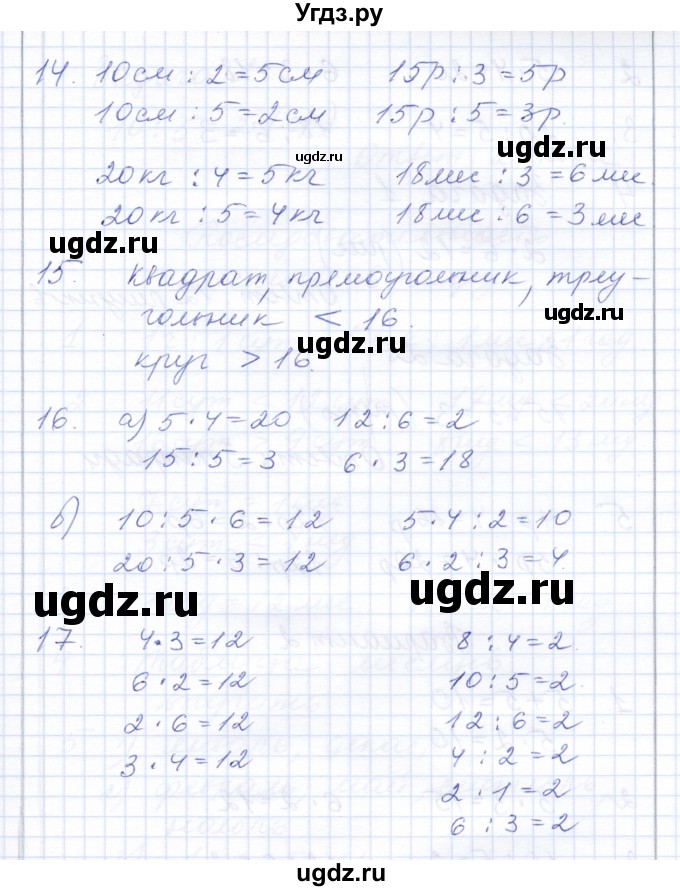 Угдз.ру
14. 10см : 2 = 5см 15р : 3 = 5р
10см : 5 = 2см 15р. : 5 = 3р.
ugdz.ru
20кг : 4 = 5кг 18мин : 3 = 6мин.
20кг : 5 = 4кг 18мин : 6 = 3мин
ugdz.ru ugdz.ru
15. квадрат, прямоугольник, треу-
гольник < 16.
ugdz.ru ugdz.ru
круг > 16.
16. а) 5 · 4 = 20 12 : 6 = 2
15 : 5 = 3 6 · 3 = 18
б) 10 : 5 · 6 = 12 5 · 4 : 2 = 10
20 : 5 · 3 = 12 6 · 2 : 3 = 4.
ugdz.ru ugdz.ru
17. 4 · 3 = 12 8 : 4 = 2.
6 · 2 = 12 10 : 5 = 2.
2 · 6 = 12 12 : 6 = 2
3 · 4 = 12 4 : 2 = 2
2 · 1 = 2
6 : 3 = 2
ugdz.ru ugdz.ru